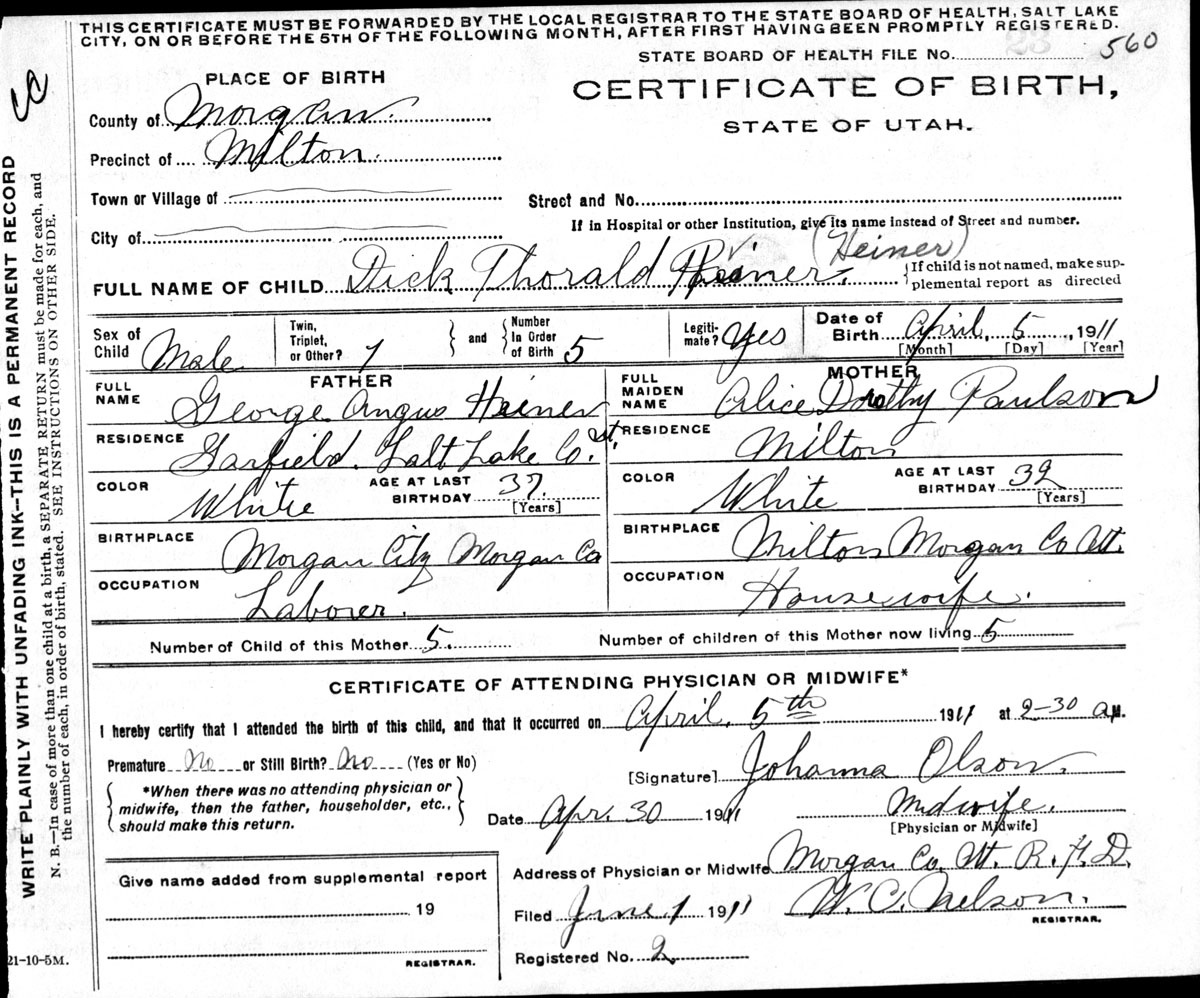 THIS CERTIFICATE MUST BE FORWARDED BY THE LOCAL REGISTRAR TO THE STATE BOARD OF HEALTH, SALT LAKE
CITY, ON OR BEFORE THE 5TH OF THE FOLLOWING MONTH, AFTER FIRST HAVING BEEN PROMPTLY REGISTERED.
STATE BOARD OF HEALTH FILE No. 560
PLACE OF BIRTH
CERTIFICATE OF BIRTH,
STATE OF UTAH.
County of Morgan.
Precinct of Milton.
Town or Village of
Street and No.
If in Hospital or other Institution, give its name instead of Street and number.
City of
(Heiner)
FULL NAME OF CHILD Dick Thorald Heiner.
If child is not named, make sup-
plemental report as directed
Sex of Child Male
Twin, Triplet, or Other? 1
and
Number In Order of Birth 5
Legiti-mate? Yes
Date of Birth April, 5, 1911
[Month] [Day] [Year]
FATHER
FULL NAME George Angus Heiner
RESIDENCE Garfield. Salt Lake Co. ut.
COLOR White
AGE AT LAST BIRTHDAY 37. [Years]
BIRTHPLACE Morgan City Morgan Co
OCCUPATION Laborer.
MOTHER
FULL MAIDEN NAME Alice Dorothy Paulson
RESIDENCE Milton
COLOR White
AGE AT LAST BIRTHDAY 32 [Years]
BIRTHPLACE Milton Morgan Co Ut.
OCCUPATION Housewife.
Number of Child of this Mother 5.
Number of children of this Mother now living 5
CERTIFICATE OF ATTENDING PHYSICIAN OR MIDWIFE*
I hereby certify that I attended the birth of this child, and that it occurred on April, 5th 1911 at 2-30 a M.
Premature No or Still Birth? No (Yes or No)
[Signature] Johanna Olson.
*When there was no attending physician or
midwife, then the father, householder, etc.,
should make this return.
Date Apr. 30 1911
Midwife.
[Physician or Midwife]
Address of Physician or Midwife Morgan Co. Ut. R.F.D.
Give name added from supplemental report
19
REGISTRAR.
Filed June 1 1911
W. C. Nelson.
REGISTRAR.
Registered No. 2
21-10-5M.
WRITE PLAINLY WITH UNFADING INK—THIS IS A PERMANENT RECORD
N. B.—In case of more than one child at a birth, a SEPARATE RETURN must be made for each, and
the number of each, in order of birth, stated. SEE INSTRUCTIONS ON OTHER SIDE.